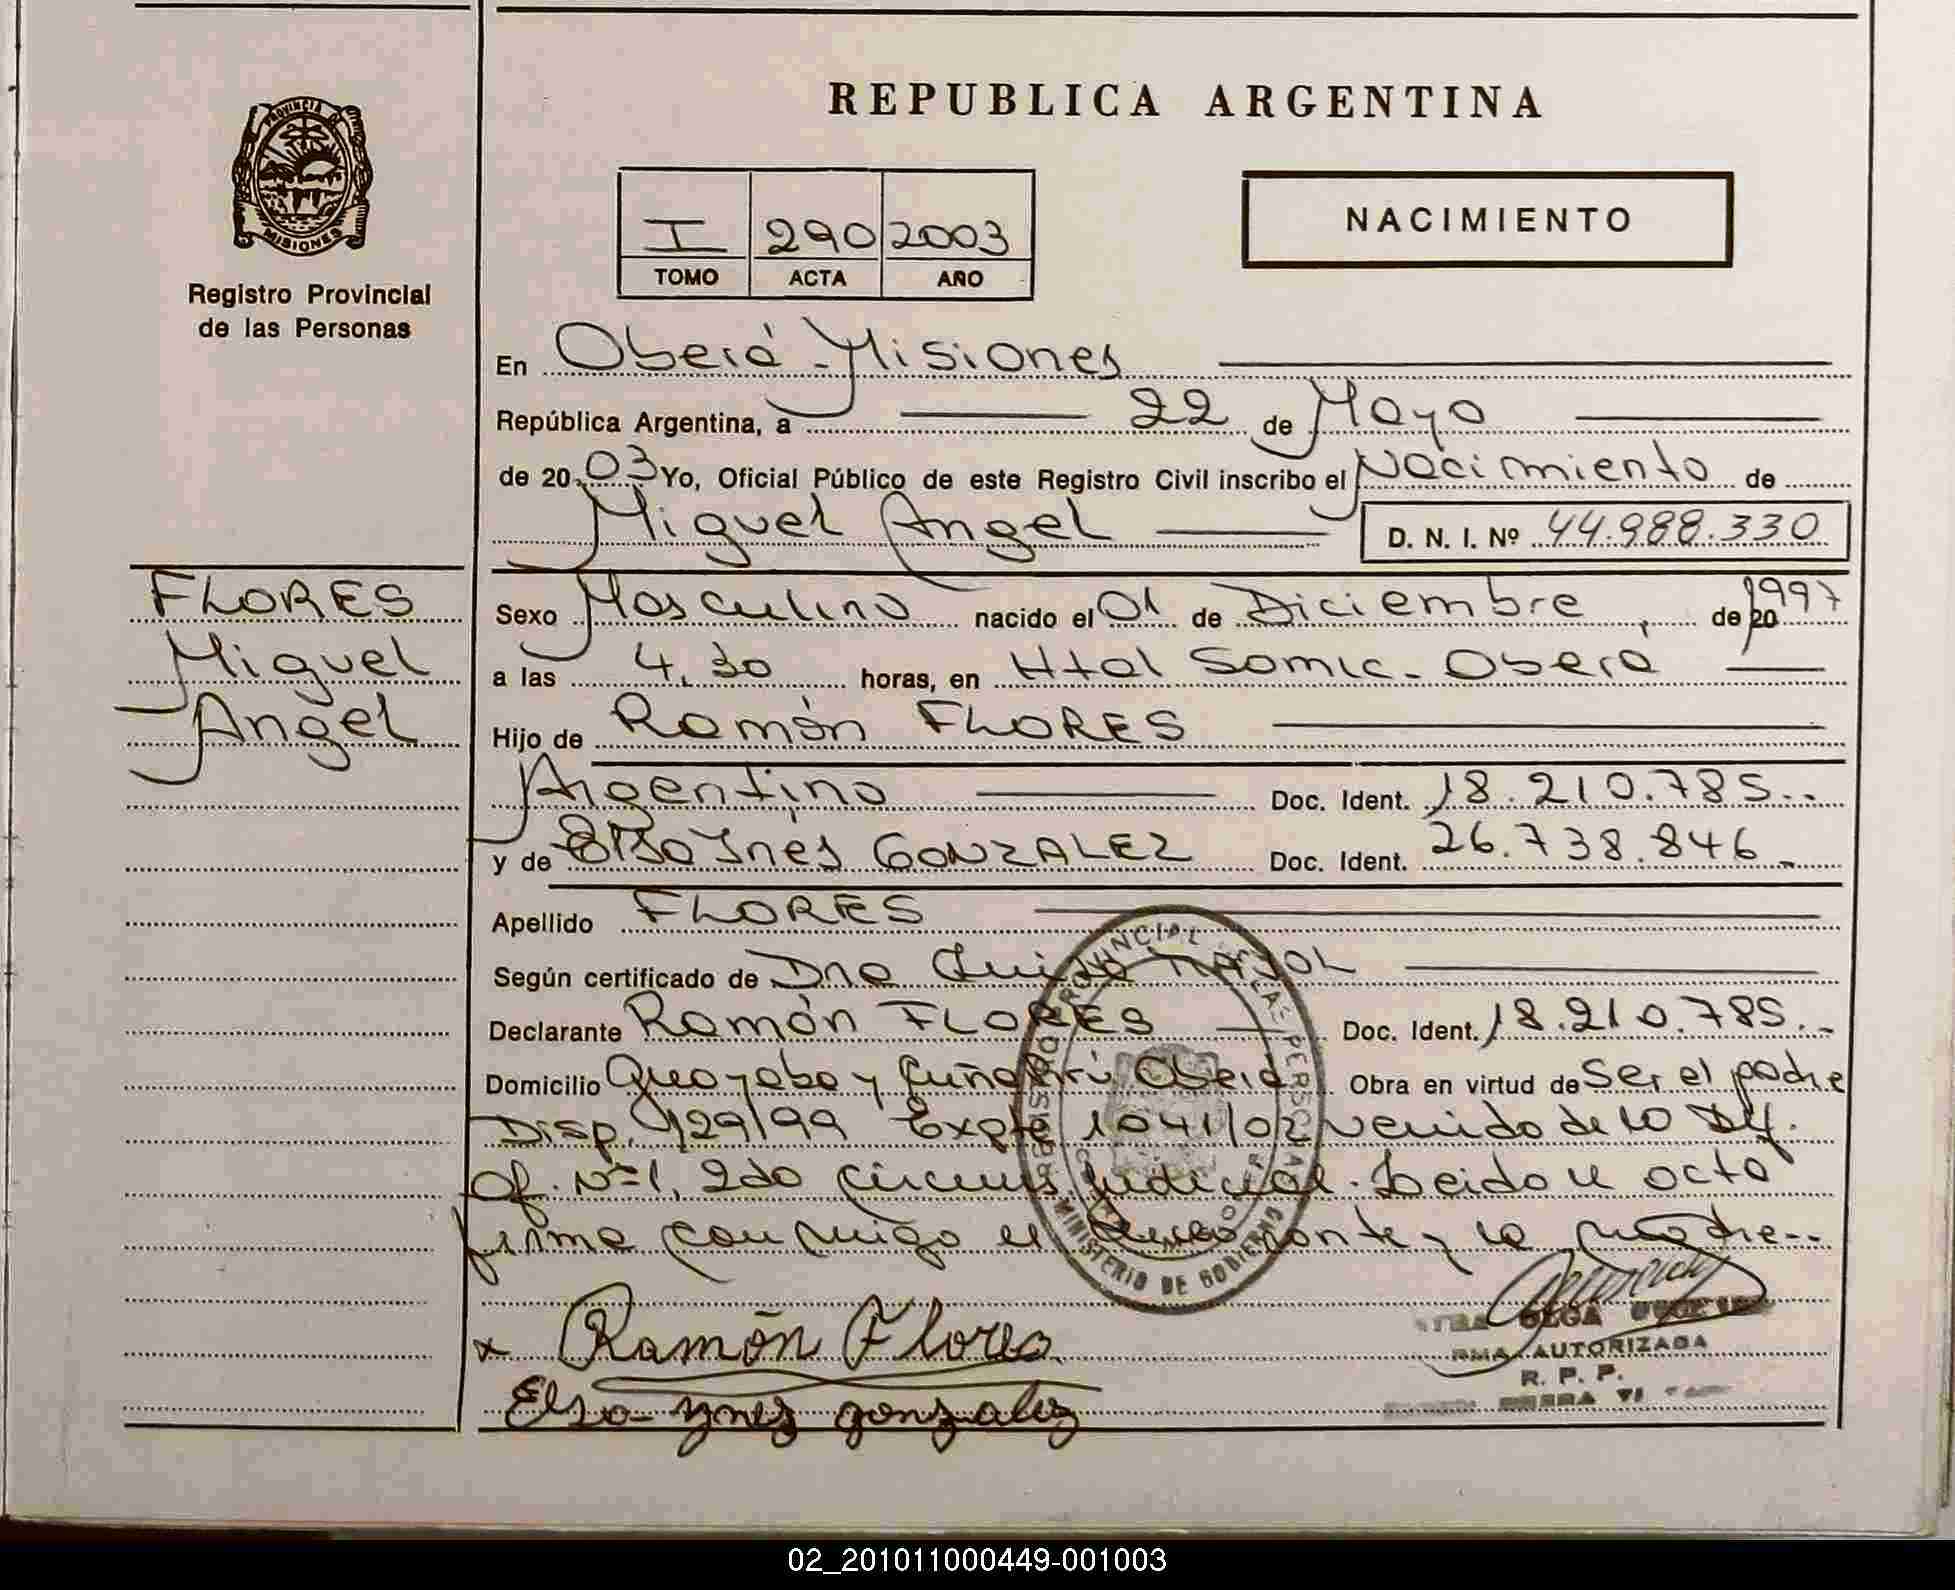 REPUBLICA ARGENTINA
PROVINCIA DE
MISIONES
Registro Provincial
de las Personas
I 290 2003
TOMO ACTA AÑO
NACIMIENTO
En Oberá - Misiones
República Argentina, a 22 de Mayo
de 20 03 Yo, Oficial Público de este Registro Civil inscribo el Nacimiento de
Miguel Angel D. N. I. Nº 44.988.330
FLORES
Miguel
Angel
Sexo Masculino nacido el 01 de Diciembre, de 20 1997
a las 4,30 horas, en Htal Samic - Oberá
Hijo de Ramón FLORES
Argentino Doc. Ident. 18.210.785..
y de Elsa Inés GONZALEZ Doc. Ident. 26.738.846
Apellido FLORES
Según certificado de Dra
Declarante Ramón FLORES Doc. Ident. 18.210.785..
Domicilio Guayaba y Oberá Obra en virtud de Ser el padre
Disp. 129/99 Expte 1041/02 venido de la
Of. Nº 1, 2da judicial. Leido el acta
firma conmigo el y la madre..
x Ramón Flores
Elsa Ynez gonzalez
PROVINCIAL DE LAS PERSONAS
MINISTERIO DE GOBIERNO
OLGA
AUTORIZADA
R. P. P.
02_201011000449-001003